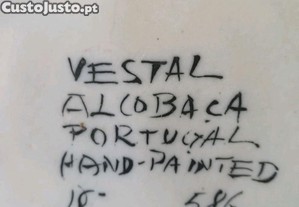 CustoJusto.pt
VESTAL
ALCOBAÇA
PORTUGAL
HAND-PAINTED